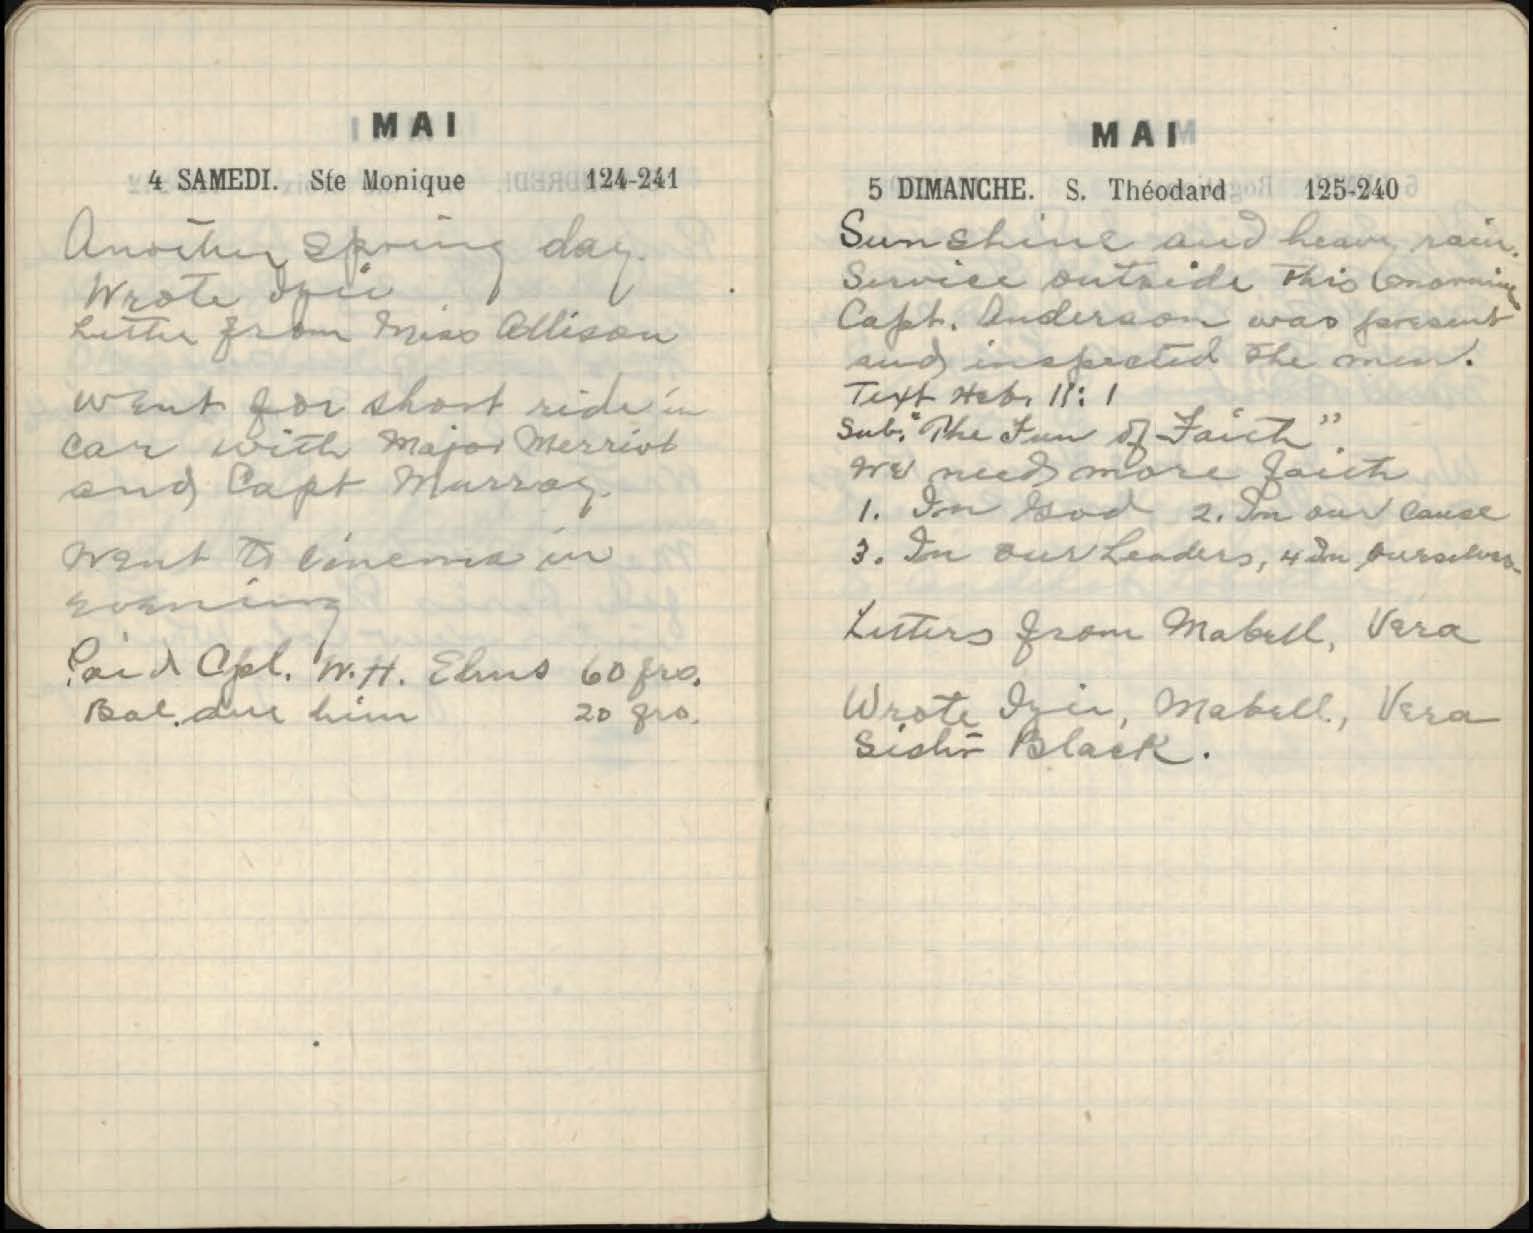 MAI
4 SAMEDI. Ste Monique 124-241
Another spring day.
Wrote Izie
Letter from Miss Allison
Went for short ride in
car with Major Merriot
and Capt Murray.
Went to Cinema in
evening
Paid Cpl. W.H. Elms 60 frs.
Bal. due him 20 frs.
MAI
5 DIMANCHE. S. Théodard 125-240
Sunshine and heavy rain.
Service outside this morning
Capt. Anderson was present
and inspected the men.
Text Heb. 11:1
Sub. "The Fun of Faith".
We need more faith
1. In God 2. In our Cause
3. In our Leaders, 4 In ourselves
Letters from Mabell, Vera
Wrote Izie, Mabell, Vera
Sister Black.